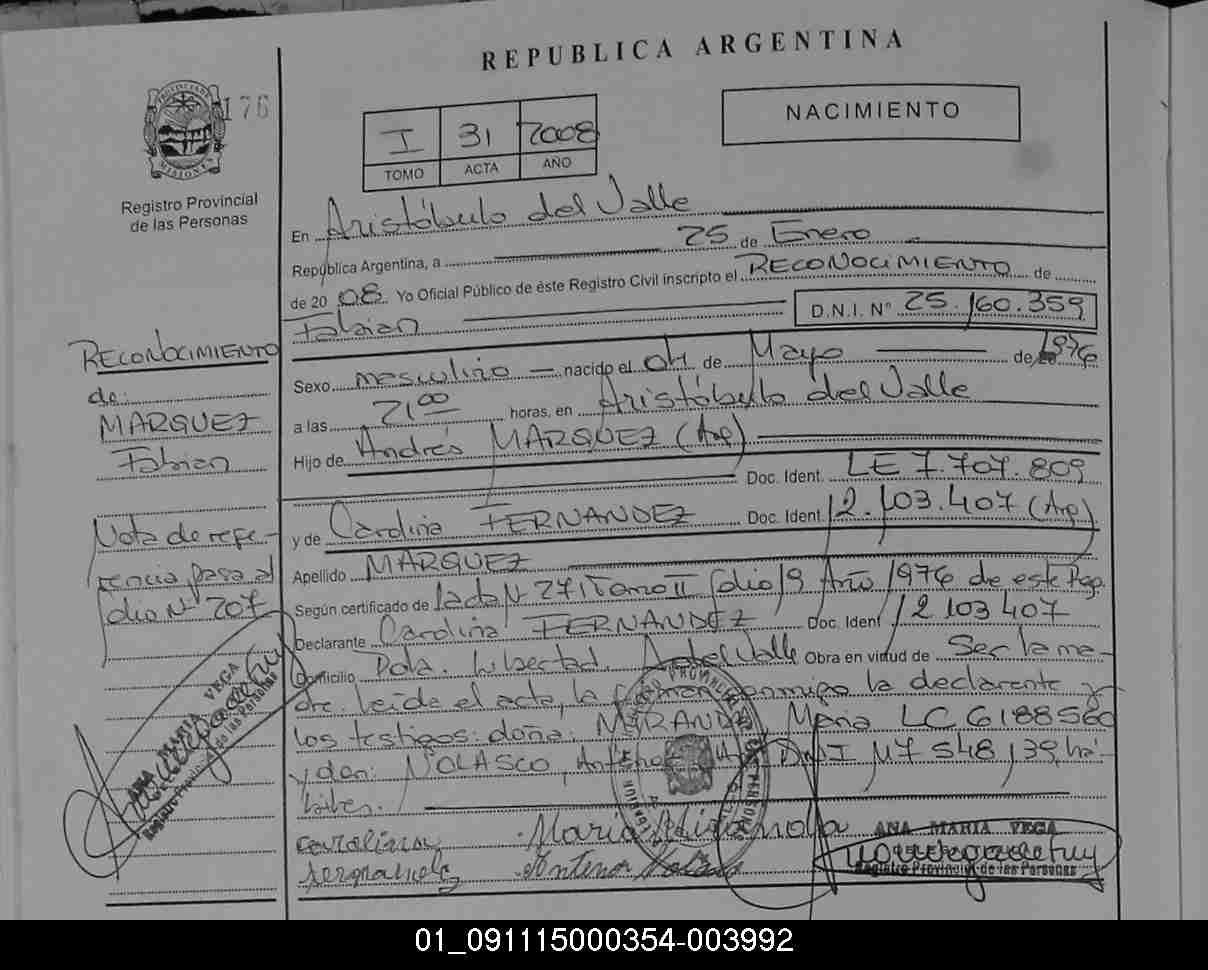 REPUBLICA ARGENTINA
176
PROVINCIA DE
MISIONES
Registro Provincial
de las Personas
NACIMIENTO
I 31 2008
TOMO ACTA AÑO
En Aristóbulo del Valle
República Argentina, a 25 de Enero
de 2008 Yo Oficial Público de éste Registro Civil inscripto el RECONOCIMIENTO de
Fabian D.N.I. Nº 25.160.359
Sexo masculino nacido el 04 de Mayo de 1976
a las 21 00 horas, en Aristóbulo del Valle
Hijo de Andrés MARQUEZ (Arg)
Doc. Ident. LE 7.707.809
y de Carolina FERNANDEZ Doc. Ident. 12.103.407 (Arg)
Apellido MARQUEZ
Según certificado de Acta Nº 271 Tomo II folio 19 Año 1976 de este Reg.
Declarante Carolina FERNANDEZ Doc. Ident 12 103 407
Domicilio Pcia. Libertad. A del Valle Obra en virtud de Ser la ma-
dre. Leída el acta, la firman conmigo la declarante y
los testigos: doña: MIRANDA Maria LC 6188560
y don: NOLASCO, Antenor DNI M7 548 139 há-
biles.
RECONOCIMIENTO
de:
MARQUEZ
Fabian
Nota de refe-
rencia pasa al
folio Nº 207
ANA MARIA VEGA
Registro Provincial de las Personas
carolina Maria Miranda ANA MARIA VEGA
fernandez Antenor Nolasco Registro Provincial de las Personas
01_091115000354-003992